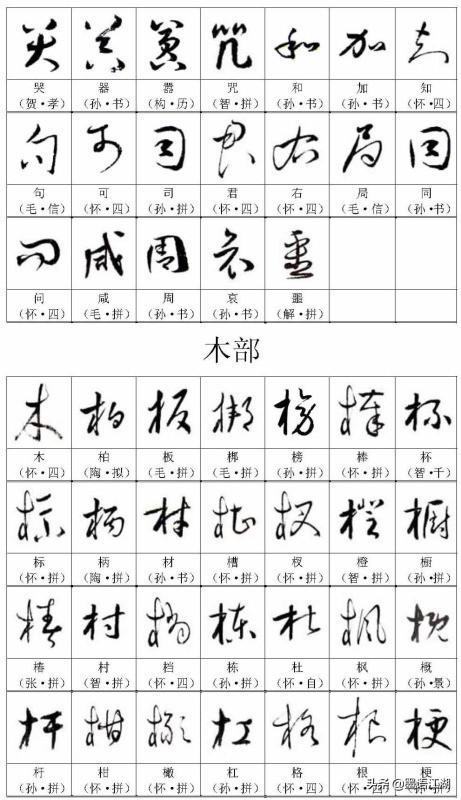 哭 器 嚣 咒 和 加 知
(贺·孝) (孙·书) (构·历) (智·拼) (孙·书) (孙·书) (怀·四)
句 可 司 君 右 局 同
(毛·信) (怀·四) (孙·拼) (怀·四) (怀·四) (毛·信) (孙·书)
问 咸 周 哀 噩
(怀·四) (毛·拼) (孙·书) (孙·书) (解·拼)
木部
木 柏 板 梆 榜 棒 杯
(怀·四) (陶·拟) (毛·拼) (毛·拼) (孙·拼) (怀·拼) (智·千)
标 柄 材 槽 杈 橙 橱
(怀·拼) (陶·拼) (孙·书) (怀·拼) (怀·拼) (智·拼) (孙·拼)
椿 村 档 栋 杜 枫 概
(张·拼) (智·拼) (怀·四) (孙·拼) (怀·自) (怀·拼) (孙·景)
杆 柑 橄 杠 格 根 梗
(孙·拼) (怀·拼) (怀·拼) (孙·拼) (怀·四)
头条 @墨语江湖